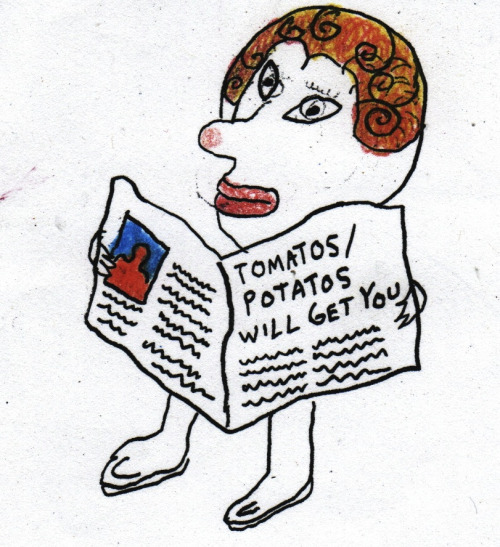 TOMATOS/
POTATOS
WILL GET YOU